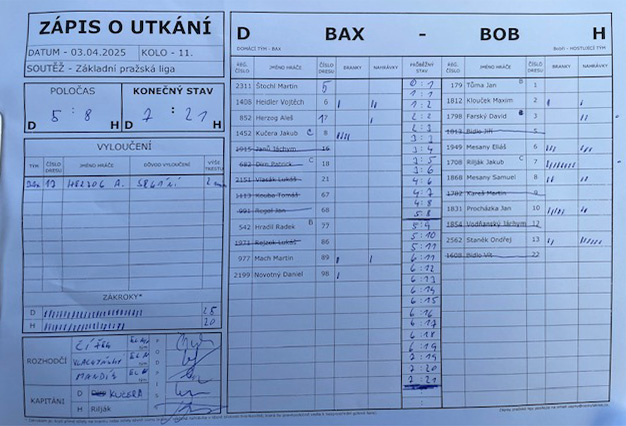 ZÁPIS O UTKÁNÍ
DATUM - 03.04.2025 KOLO - 11.
SOUTĚŽ - Základní pražská liga
POLOČAS KONEČNÝ STAV
5 : 8 7 : 21
D H D H
VYLOUČENÍ
TÝM ČÍSLO DRESU JMÉNO HRÁČE DŮVOD VYLOUČENÍ VÝŠE TRESTU
BAX 17 HERZOG A. SEKÁNÍ 2
ZÁKROKY*
D 25
H 20
ROZHODČÍ
KAPITÁNI D KUČERA
H Rilják
D BAX - BOB H
DOMÁCÍ TÝM - BAX BOB - HOSTUJÍCÍ TÝM
REG. ČÍSLO JMÉNO HRÁČE ČÍSLO DRESU BRANKY NAHRÁVKY PRŮBĚŽNÝ STAV REG. ČÍSLO JMÉNO HRÁČE ČÍSLO DRESU BRANKY NAHRÁVKY
2311 Štochl Martin 5 0:1 179 Tůma Jan B 1
1:1
1408 Heidler Vojtěch 6 1:2 1812 Klouček Maxim 2
852 Herzog Aleš 17 2:2 1798 Farský David 3
2:3
1452 Kučera Jakub C 8 3:3 1813 Bidlo Jiří 5
1915 Janů Jáchym 16 3:4 1949 Mesany Eliáš 6
3:5
682 Den Patrick C 18 3:6 1708 Rilják Jakub C 7
2151 Vlasák Lukáš 21 4:6 1868 Mesany Samuel 8
4:7
1113 Kouba Tomáš 67 4:8 1782 Kareš Martin 9
991 Rogol Jan 68 5:8 1831 Procházka Jan 10
542 Hradil Radek B 77 5:9 1854 Vodňanský Jáchym 12
5:10
1971 Rejzek Lukáš 86 5:11 2562 Staněk Ondřej 13
977 Mach Martin 89 6:11 1608 Bidlo Vít 22
6:12
2199 Novotný Daniel 98 6:13
6:14
6:15
6:16
6:17
6:18
6:19
7:19
7:20
7:21